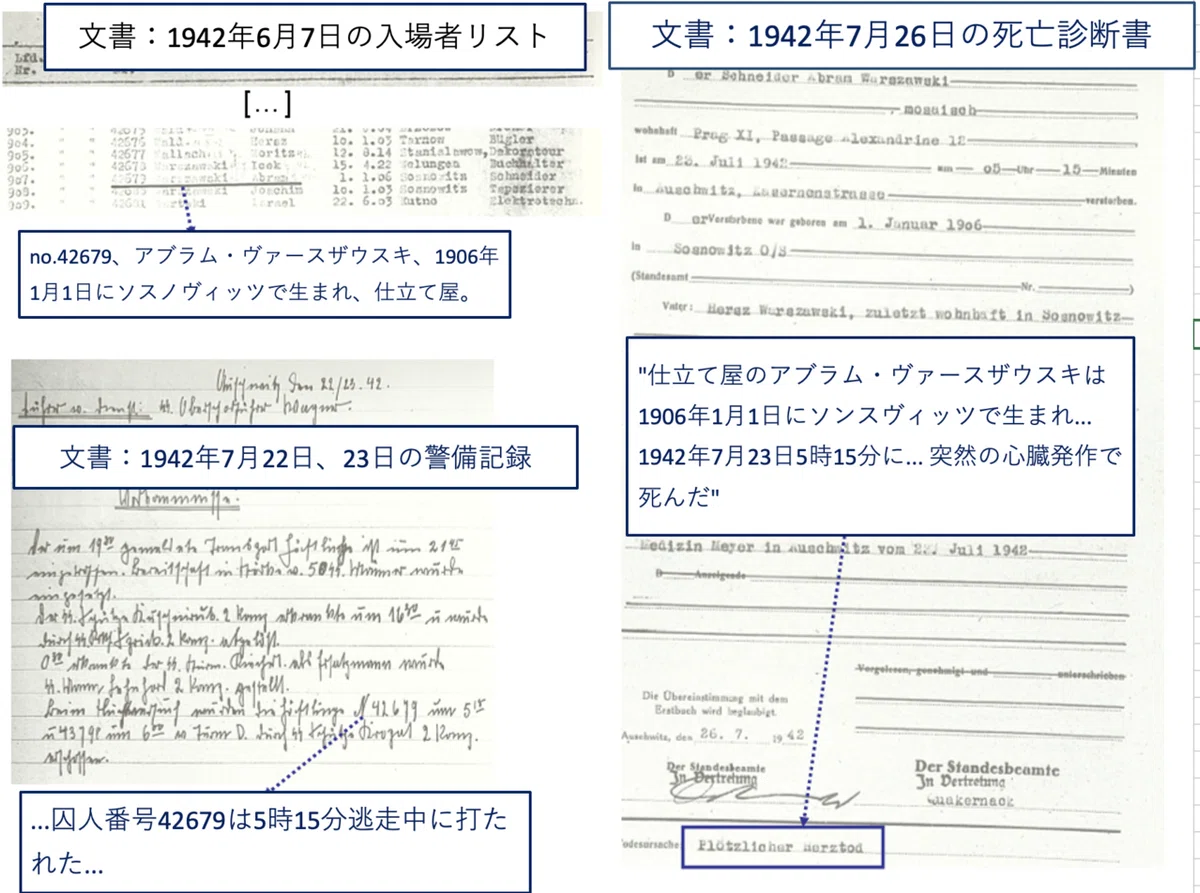 文書：1942年6月7日の入場者リスト
Lfd.
Nr.
[…]
903.
904. Hersz 10. 1.03 Tarnow Bügler
905. 42677 Moritz 12. 8.14 Stanislawow, Dekorateur
906. Warszawski Icek 15. 4.22 Buchhalter
907. 42679 Warszawski Abram 1. 1.06 Sosnowitz Schneider
908. Joachim 10. 1.03 Sosnowitz Tapezierer
909. Israel 22. 6.03 Kutno Elektrotechn.
no.42679、アブラム・ヴァースザウスキ、1906年
1月1日にソスノヴィッツで生まれ、仕立て屋。
Auschwitz den 22/23. 42.
Führer v. Dienst: SS Oberscharführer Wagner.
文書：1942年7月22日、23日の警備記録
Vorkommnisse.
Der um 19 gemeldete Transport Häftlinge ist um 21
eingetroffen. Bereitschaft in Stärke v. 50 SS Männer wurde
eingesetzt.
Der SS Schütze 2 Komp. erkrankte um 16 u wurde
durch SS 2 Komp. abgelöst.
erkrankte der SS Sturm. als Ersatzmann wurde
SS Mann 2 Komp. gestellt.
Beim Fluchtversuch wurden die Häftlinge N 42679 um 5 15
u 43791 um 6 v Turm D. durch SS Schütze 2 Komp.
erschossen.
…囚人番号42679は5時15分逃走中に打た
れた…
文書：1942年7月26日の死亡診断書
D er Schneider Abram Warszawski
, mosaisch
wohnhaft Prag XI, Passage Alexandrine 12
ist am 23. Juli 1942 um 05 Uhr 15 Minuten
in Auschwitz, Kasernenstrasse verstorben.
D er Verstorbene war geboren am 1. Januar 1906
in Sosnowitz O/S
(Standesamt Nr. )
Vater: Hersz Warszawski, zuletzt wohnhaft in Sosnowitz
"仕立て屋のアブラム・ヴァースザウスキは
1906年1月1日にソンスヴィッツで生まれ…
1942年7月23日5時15分に… 突然の心臓発作で
死んだ"
Medizin Meyer in Auschwitz vom 23. Juli 1942
D Anzeigende
Vorgelesen, genehmigt und unterschrieben
Die Übereinstimmung mit dem
Erstbuch wird beglaubigt.
Auschwitz, den 26. 7. 19 42
Der Standesbeamte
In Vertretung
Der Standesbeamte
In Vertretung
Quakernack
Todesursache: Plötzlicher Herztod